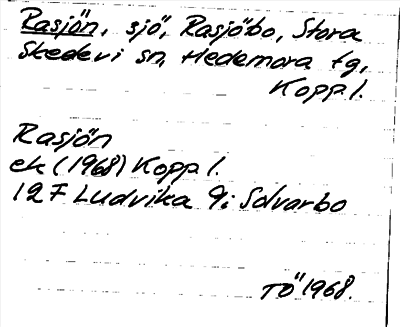 Rasjön, sjö, Rasjöbo, Stora
Skedevi sn, Hedemora tg,
Kopp.l.
Rasjön
ek (1968) Kopp l.
12 F Ludvika 9i Solvarbo
TÖ 1968.